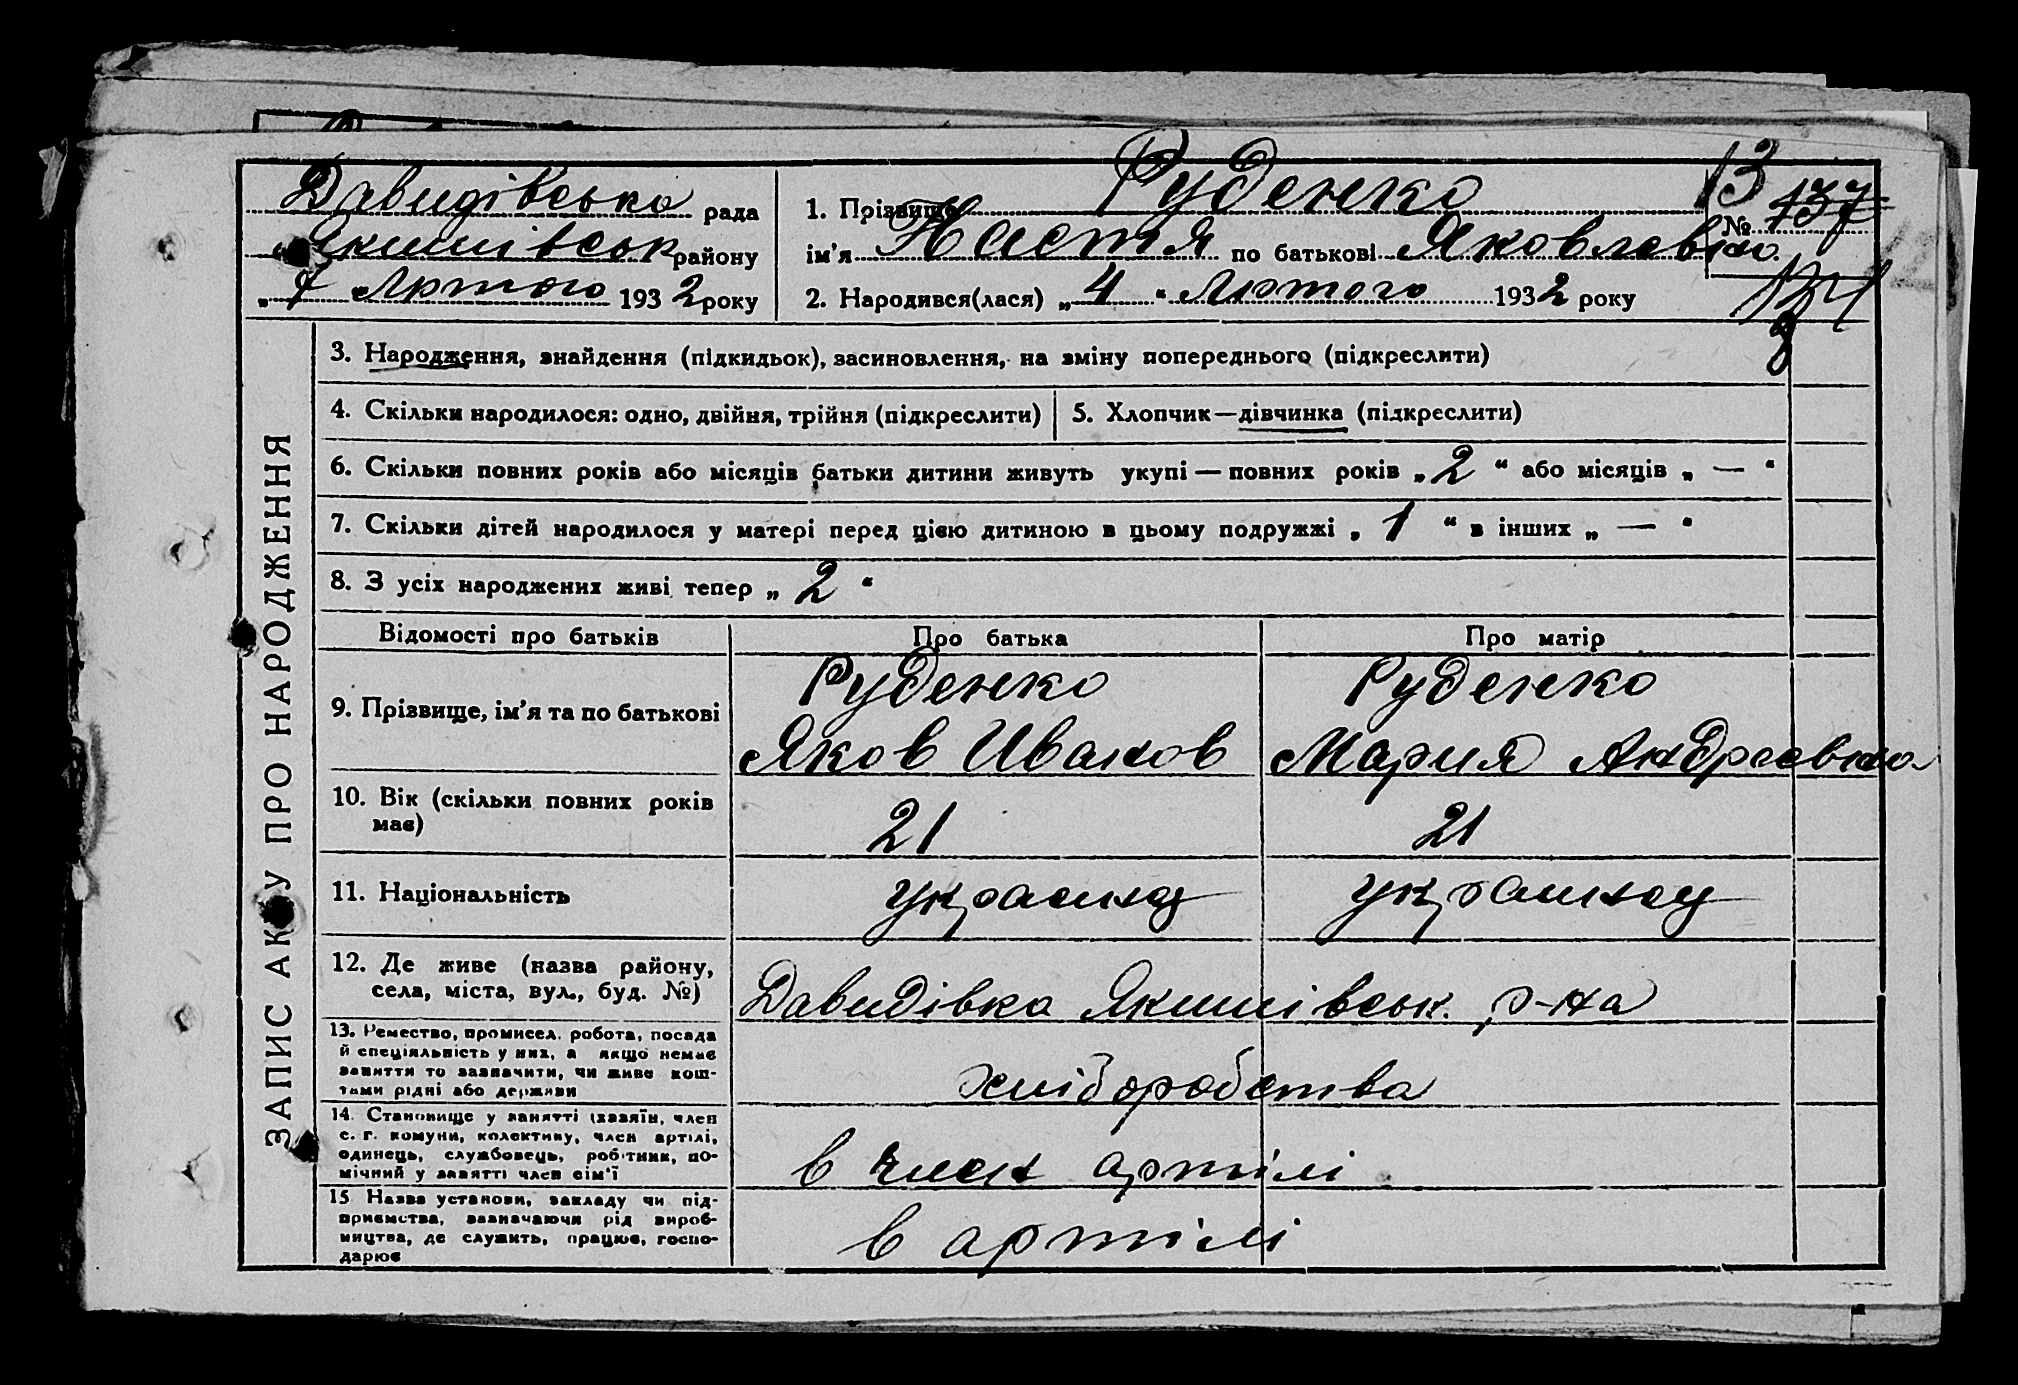 Давидівська рада
Якимівськ району
„ 7 " Лютого 1932 року
1. Прізвище Руденко
ім'я Настя по батькові Яковлевна
2. Народився(лася) „ 4 " Лютого 1932 року
13
№ 137
ЗАПИС АКТУ ПРО НАРОДЖЕННЯ
3. Народження, знайдення (підкидьок), засиновлення, на зміну попереднього (підкреслити)
4. Скільки народилося: одно, двійня, трійня (підкреслити)
5. Хлопчик—дівчинка (підкреслити)
6. Скільки повних років або місяців батьки дитини живуть укупі — повних років „ 2 " або місяців „ — "
7. Скільки дітей народилося у матері перед цією дитиною в цьому подружжі „ 1 " в інших „ — "
8. З усіх народжених живі тепер „ 2 "
Відомості про батьків
Про батька
Про матір
9. Прізвище, ім'я та по батькові
Руденко
Яков Иванов
Руденко
Мария Андреевна
10. Вік (скільки повних років
має)
21
21
11. Національність
украинц
украинц
12. Де живе (назва району,
села, міста, вул., буд. №)
Давидівка Якимівськ. р-на
13. Ремество, промисел, робота, посада
й спеціяльність у них, а якщо немає
заняття то зазначити, чи живе кош-
тами рідні або держави
хліборобства
14. Становище у занятті (хазяїн, член
с. г. комуни, колективу, член артілі,
одинець, службовець, робітник, по-
мічний у занятті член сім'ї
в член артілі
15 Назва установи, закладу чи під-
приємства, зазначаючи рід вироб-
ництва, де служить, працює, госпо-
дарює
в артілі